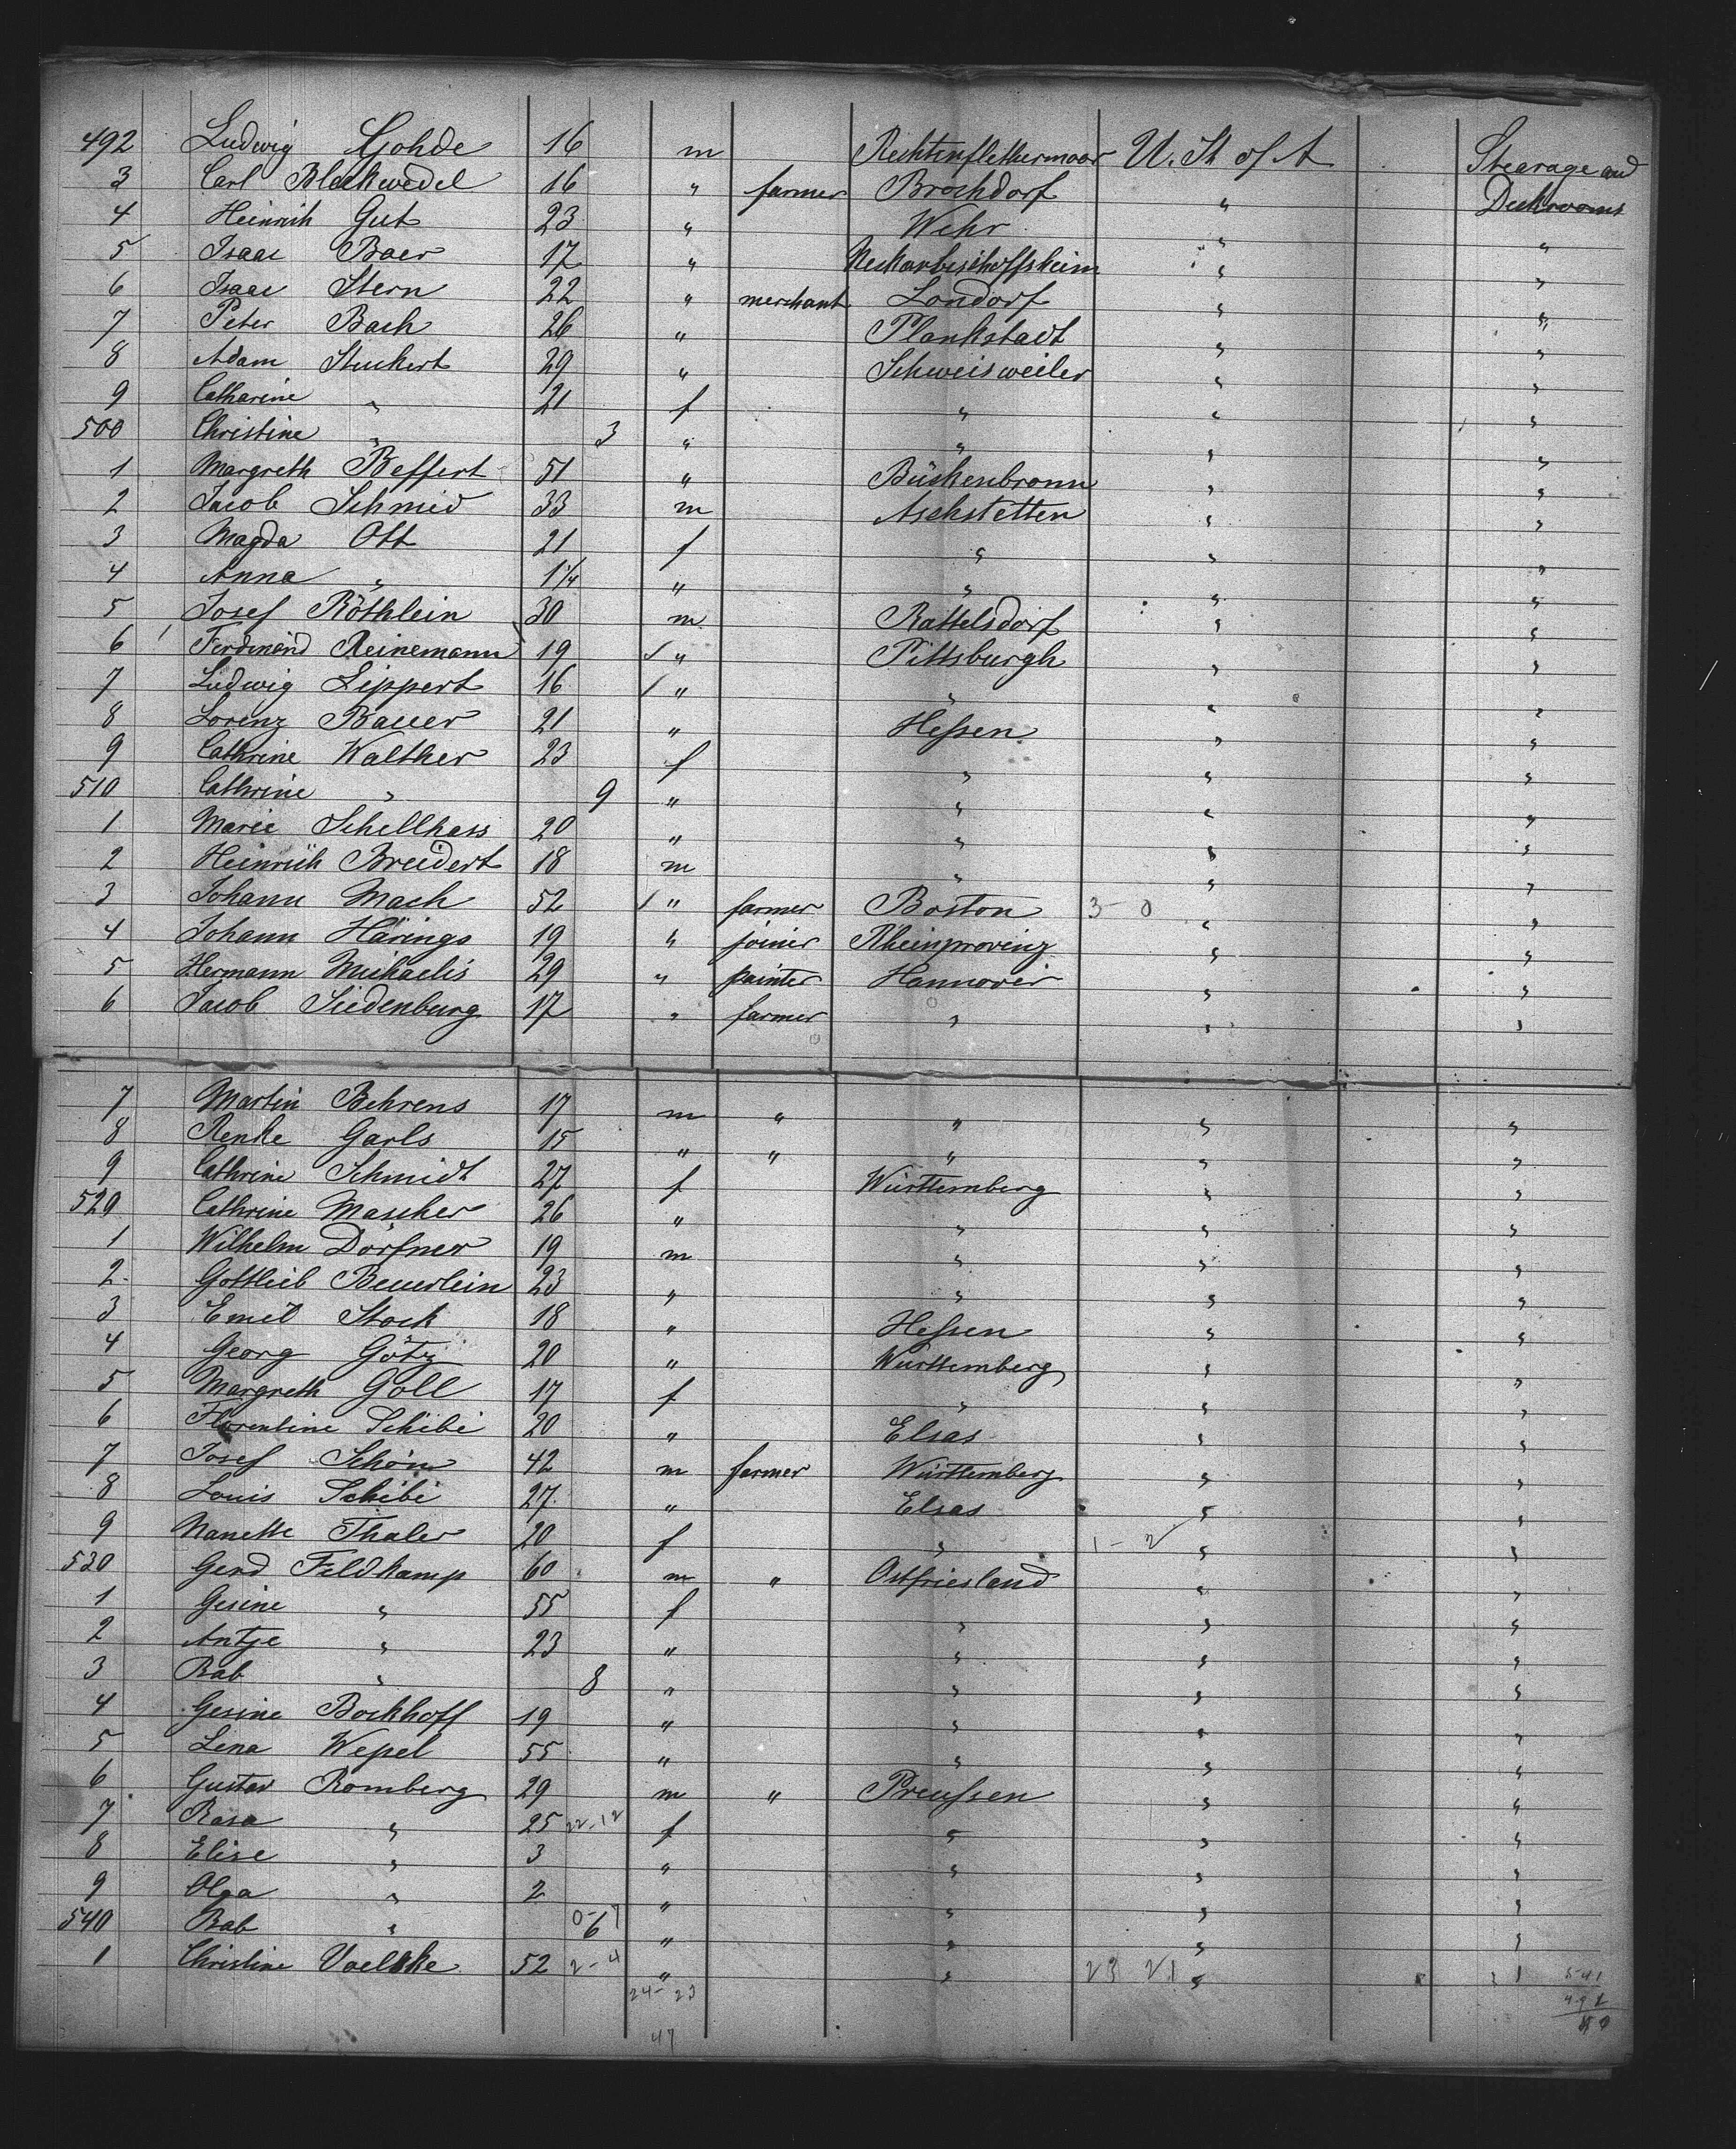 492 Ludwig Gohde 16 m Rechtenflethermoor U. St of A Stearage and
3 Carl Bleckwedel 16 " farmer Brochdorf " Deckrooms
4 Heinrich Gut 23 " Wehr " "
5 Isaac Baer 17 " Neckarbischoffsheim " "
6 Isaac Stern 22 " merchant Londorf " "
7 Peter Bach 26 " Plankstadt " "
8 Adam Stuckert 29 " Schweisweiler " "
9 Catharine " 21 f " " "
500 Christine " 3 " " " "
1 Margreth Beffert 51 " Büchenbronn " "
2 Jacob Schmid 33 m Aschstetten " "
3 Magda Ott 21 f " " "
4 Anna " 1 1/4 " " " "
5 Josef Röthlein 30 m Rattelsdorf " "
6 Ferdinand Reinemann 19 " Pittsburgh " "
7 Ludwig Lippert 16 " " " "
8 Lorenz Bauer 21 " Hessen " "
9 Cathrine Walther 23 f " " "
510 Cathrine " 9 " " " "
1 Marie Schellhass 20 " " " "
2 Heinrich Breidert 18 m " " "
3 Johann Mach 52 " farmer Boston 3 - 0 " "
4 Johann Härings 19 " joiner Rheinprovinz " "
5 Hermann Michaelis 29 " painter Hannover " "
6 Jacob Siedenburg 17 " farmer " " "
7 Martin Behrens 17 m " " " "
8 Renke Garls 15 " " " " "
9 Cathrine Schmidt 27 f Württemberg " "
520 Cathrine Mascher 26 " " " "
1 Wilhelm Dörfner 19 m " " "
2 Gottlieb Beuerlein 23 " " " "
3 Emil Stock 18 " Hessen " "
4 Georg Götz 20 " Württemberg " "
5 Margreth Göll 17 f " " "
6 Florentine Schibi 20 " Elsas " "
7 Josef Schön 42 m farmer Württemberg " "
8 Louis Schibi 27 " Elsas " "
9 Nanette Thaler 20 f " 1 - 2 " "
530 Gerd Feldkamp 60 m " Ostfriesland " "
1 Gesine " 55 f " " "
2 Antje " 23 " " " "
3 Bab " 8 " " " "
4 Gesine Bockhoff 19 " " " "
5 Lena Wessel 55 " " " "
6 Gustav Romberg 29 m " Preussen " "
7 Rosa " 25 22-12 f " " "
8 Elise " 3 " " " "
9 Olga " 2 " " " "
540 Bab " 0-7 6 " " " "
1 Christine Voelske 52 2-4 " " 23 21 " " 541
24-23 491
47 50